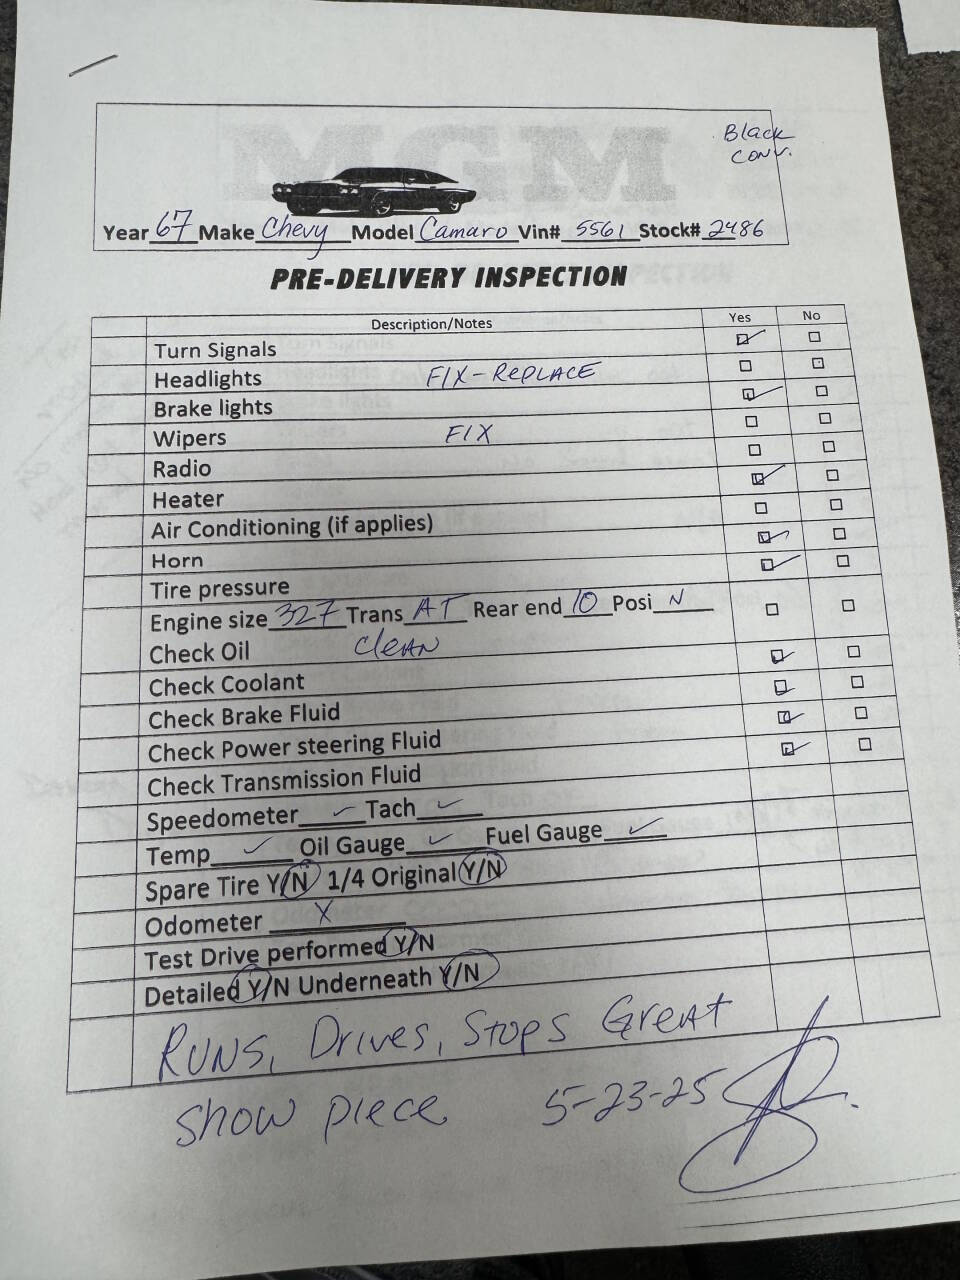 MGM
Black
conv.
Year 67 Make Chevy Model Camaro Vin# 5561 Stock# 2486
PRE-DELIVERY INSPECTION
Description/Notes Yes No
Turn Signals
Headlights FIX-REPLACE
Brake lights
Wipers FIX
Radio
Heater
Air Conditioning (if applies)
Horn
Tire pressure
Engine size 327 Trans AT Rear end 10 Posi N
Check Oil CLEAN
Check Coolant
Check Brake Fluid
Check Power steering Fluid
Check Transmission Fluid
Speedometer ✓ Tach ✓
Temp ✓ Oil Gauge ✓ Fuel Gauge ✓
Spare Tire Y/N 1/4 Original Y/N
Odometer X
Test Drive performed Y/N
Detailed Y/N Underneath Y/N
RUNS, Drives, Stops Great
Show piece 5-23-25